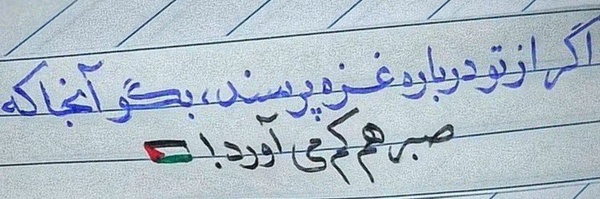 اگر از تو درباره غزه پرسند، بگو آنجا که
صبر هم کم می آورد! 🇵🇸